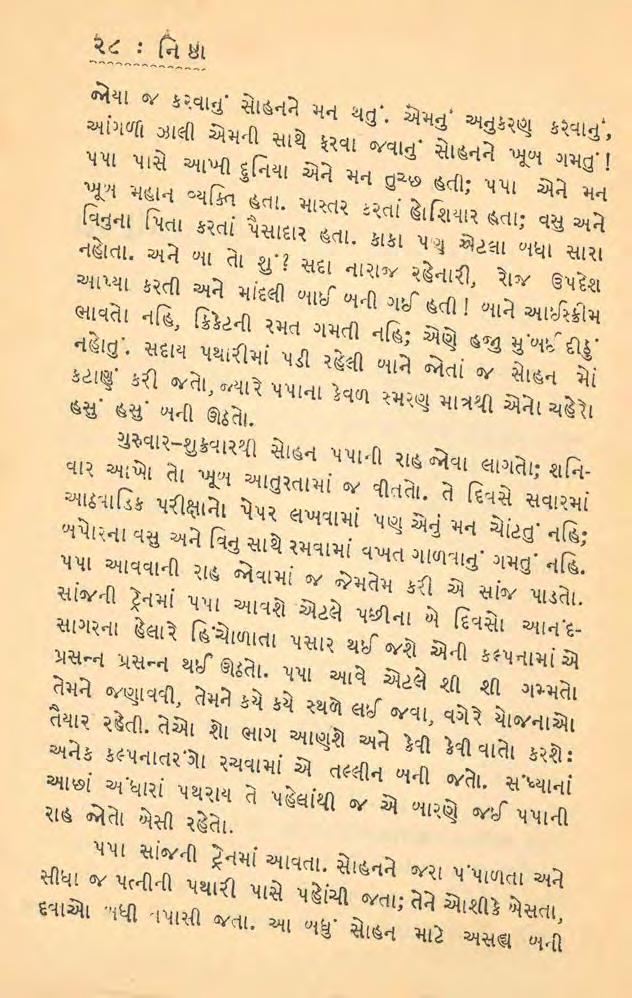 ૨૮ : નિષ્ઠા
જોયા જ કરવાનું સોહનને મન થતું. એમનું અનુકરણ કરવાનું,
આંગળી ઝાલી એમની સાથે ફરવા જવાનું સોહનને ખૂબ ગમતું!
પપા પાસે આખી દુનિયા એને મન તુચ્છ હતી; પપા એને મન
ખૂબ મહાન વ્યક્તિ હતા. માસ્તર કરતાં હોશિયાર હતા; વસુ અને
વિનુના પિતા કરતાં પૈસાદાર હતા. કાકા પણ એટલા બધા સારા
નહોતા. અને બા તો શું? સદા નારાજ રહેનારી, રોજ ઉપદેશ
આપ્યા કરતી અને માંદલી બાઈ બની ગઈ હતી! બાને આઈસ્ક્રીમ
ભાવતો નહિ, ક્રિકેટની રમત ગમતી નહિ; એણે હજી મુંબઈ દીઠું
નહોતું. સદાય પથારીમાં પડી રહેલી બાને જોતાં જ સોહન મોં
કટાણું કરી જતો, જ્યારે પપાના કેવળ સ્મરણ માત્રથી એનો ચહેરો
હસું હસું બની ઊઠતો.
ગુરુવાર–શુક્રવારથી સોહન પપાની રાહ જોવા લાગતો; શનિ-
વાર આખો તો ખૂબ આતુરતામાં જ વીતતો. તે દિવસે સવારમાં
આઠવાડિક પરીક્ષાનો પેપર લખવામાં પણ એનું મન ચોંટતું નહિ;
બપોરના વસુ અને વિનુ સાથે રમવામાં વખત ગાળવાનું ગમતું નહિ.
પપા આવવાની રાહ જોવામાં જ જેમતેમ કરી એ સાંજ પાડતો.
સાંજની ટ્રેનમાં પપા આવશે એટલે પછીના બે દિવસો આનંદ-
સાગરના હેલારે હિંચોળાતા પસાર થઈ જશે એની કલ્પનામાં એ
પ્રસન્ન પ્રસન્ન થઈ ઊઠતો. પપા આવે એટલે શી શી ગમ્મતો
તેમને જણાવવી, તેમને કયે કયે સ્થળે લઈ જવા, વગેરે યોજનાઓ
તૈયાર રહેતી. તેઓ શો ભાગ આણશે અને કેવી કેવી વાતો કરશે:
અનેક કલ્પનાતરંગો રચવામાં એ તલ્લીન બની જતો. સંધ્યાનાં
આછાં અંધારાં પથરાય તે પહેલાંથી જ એ બારણે જઈ પપાની
રાહ જોતો બેસી રહેતો.
પપા સાંજની ટ્રેનમાં આવતા. સોહનને જરા પંપાળતા અને
સીધા જ પત્નીની પથારી પાસે પહોંચી જતા; તેને ઓશીકે બેસતા,
દવાઓ બધી તપાસી જતા. આ બધું સોહન માટે અસહ્ય બની